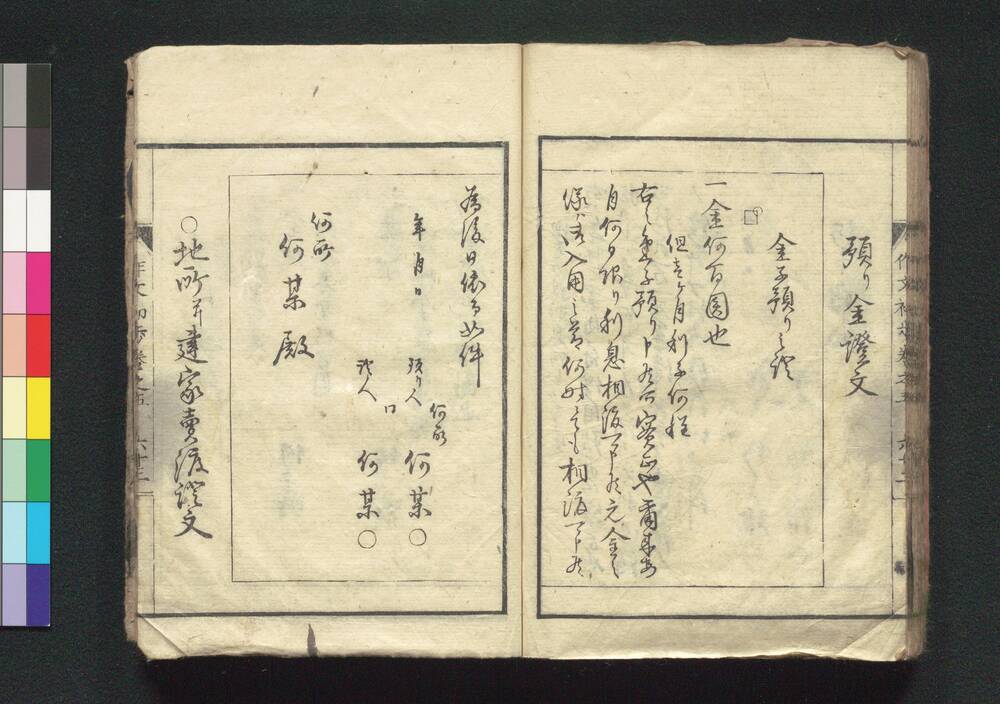 預り金證文
金子預り之證
一金何百圓也
但壱ヶ月利子何程
右之金子預り申処実正也爾来毎
月何日限り利息相渡可申候元金之
儀者御入用之節何時にても相渡可申候
為後日依而如件
年月日
何所
預り人 何某○
口
証人 何某○
何所
何某殿
○地所并建家賣渡證文
作文初歩巻之五
六十二
作文初歩巻之五
六十三